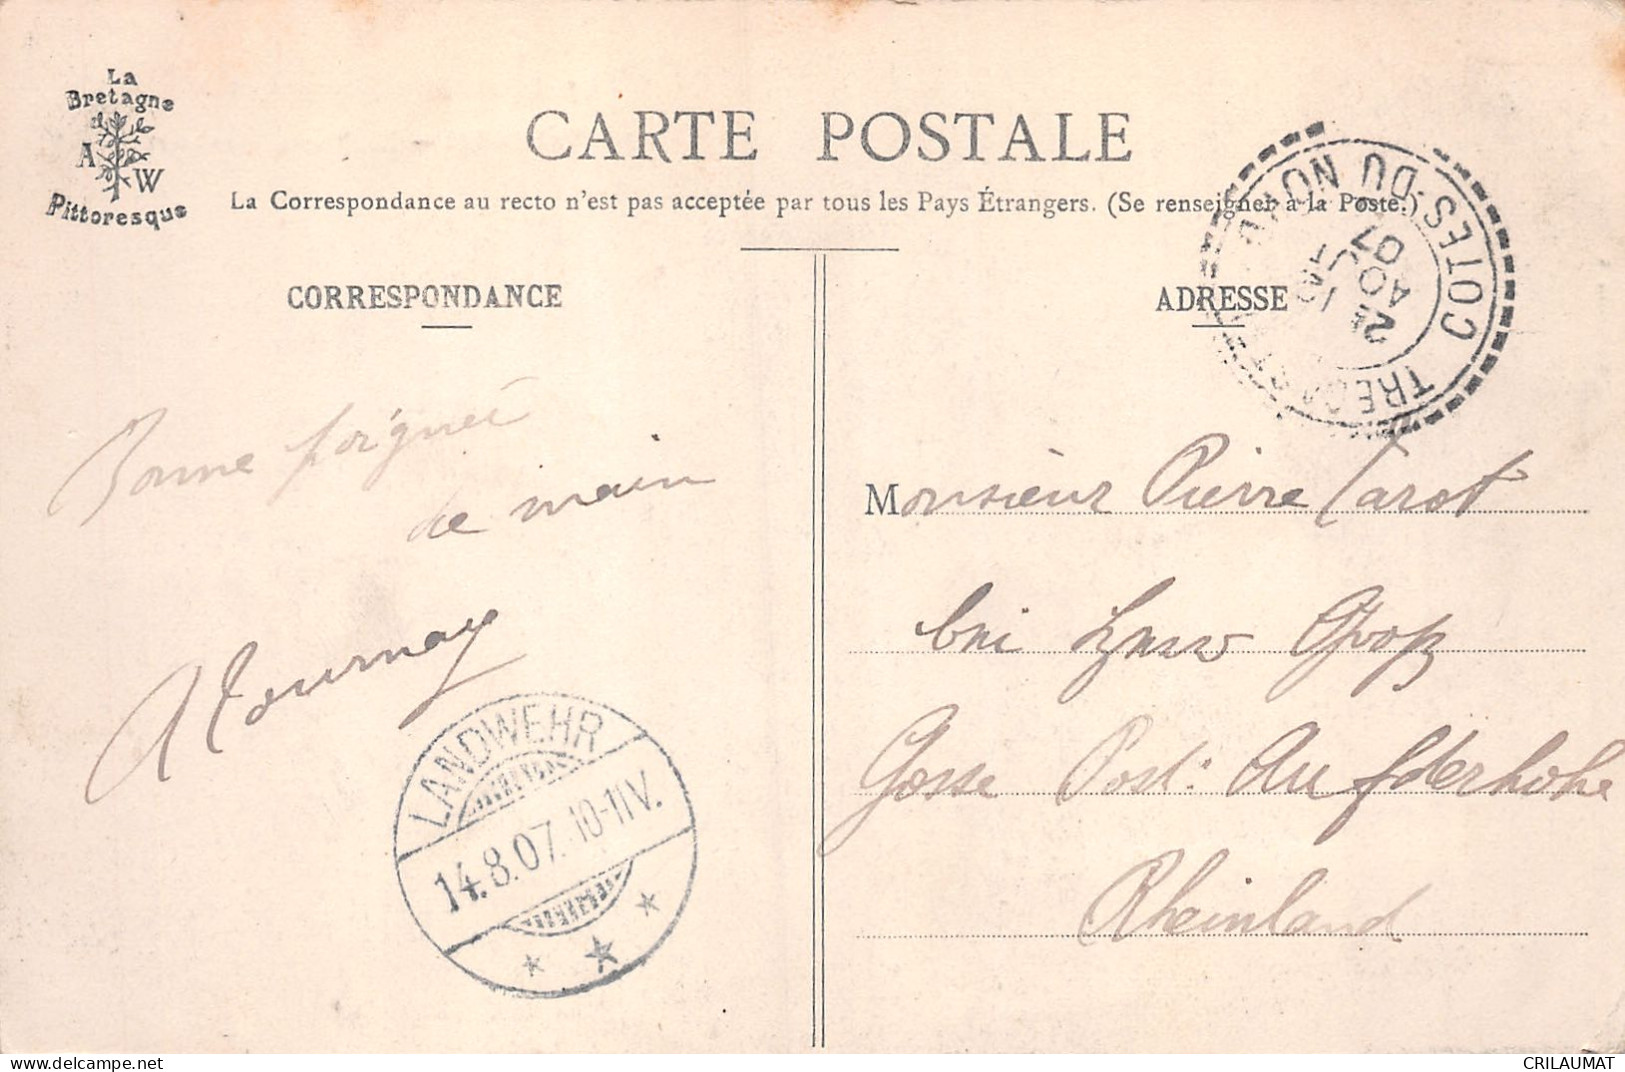 La
Bretagne
A
W
Pittoresque
CARTE POSTALE
La Correspondance au recto n'est pas acceptée par tous les Pays Étrangers. (Se renseigner à la Poste.)
CORRESPONDANCE
ADRESSE
COTES-DU-NORD
2E
AOUT
07
Bonne poignée
de main
Monsieur Pierre Tarot
bei Groß
Gosse Post: Aufderhohe
Rheinland
LANDWEHR
14.8.07. 10-11V.
delcampe.net
CRILAUMAT